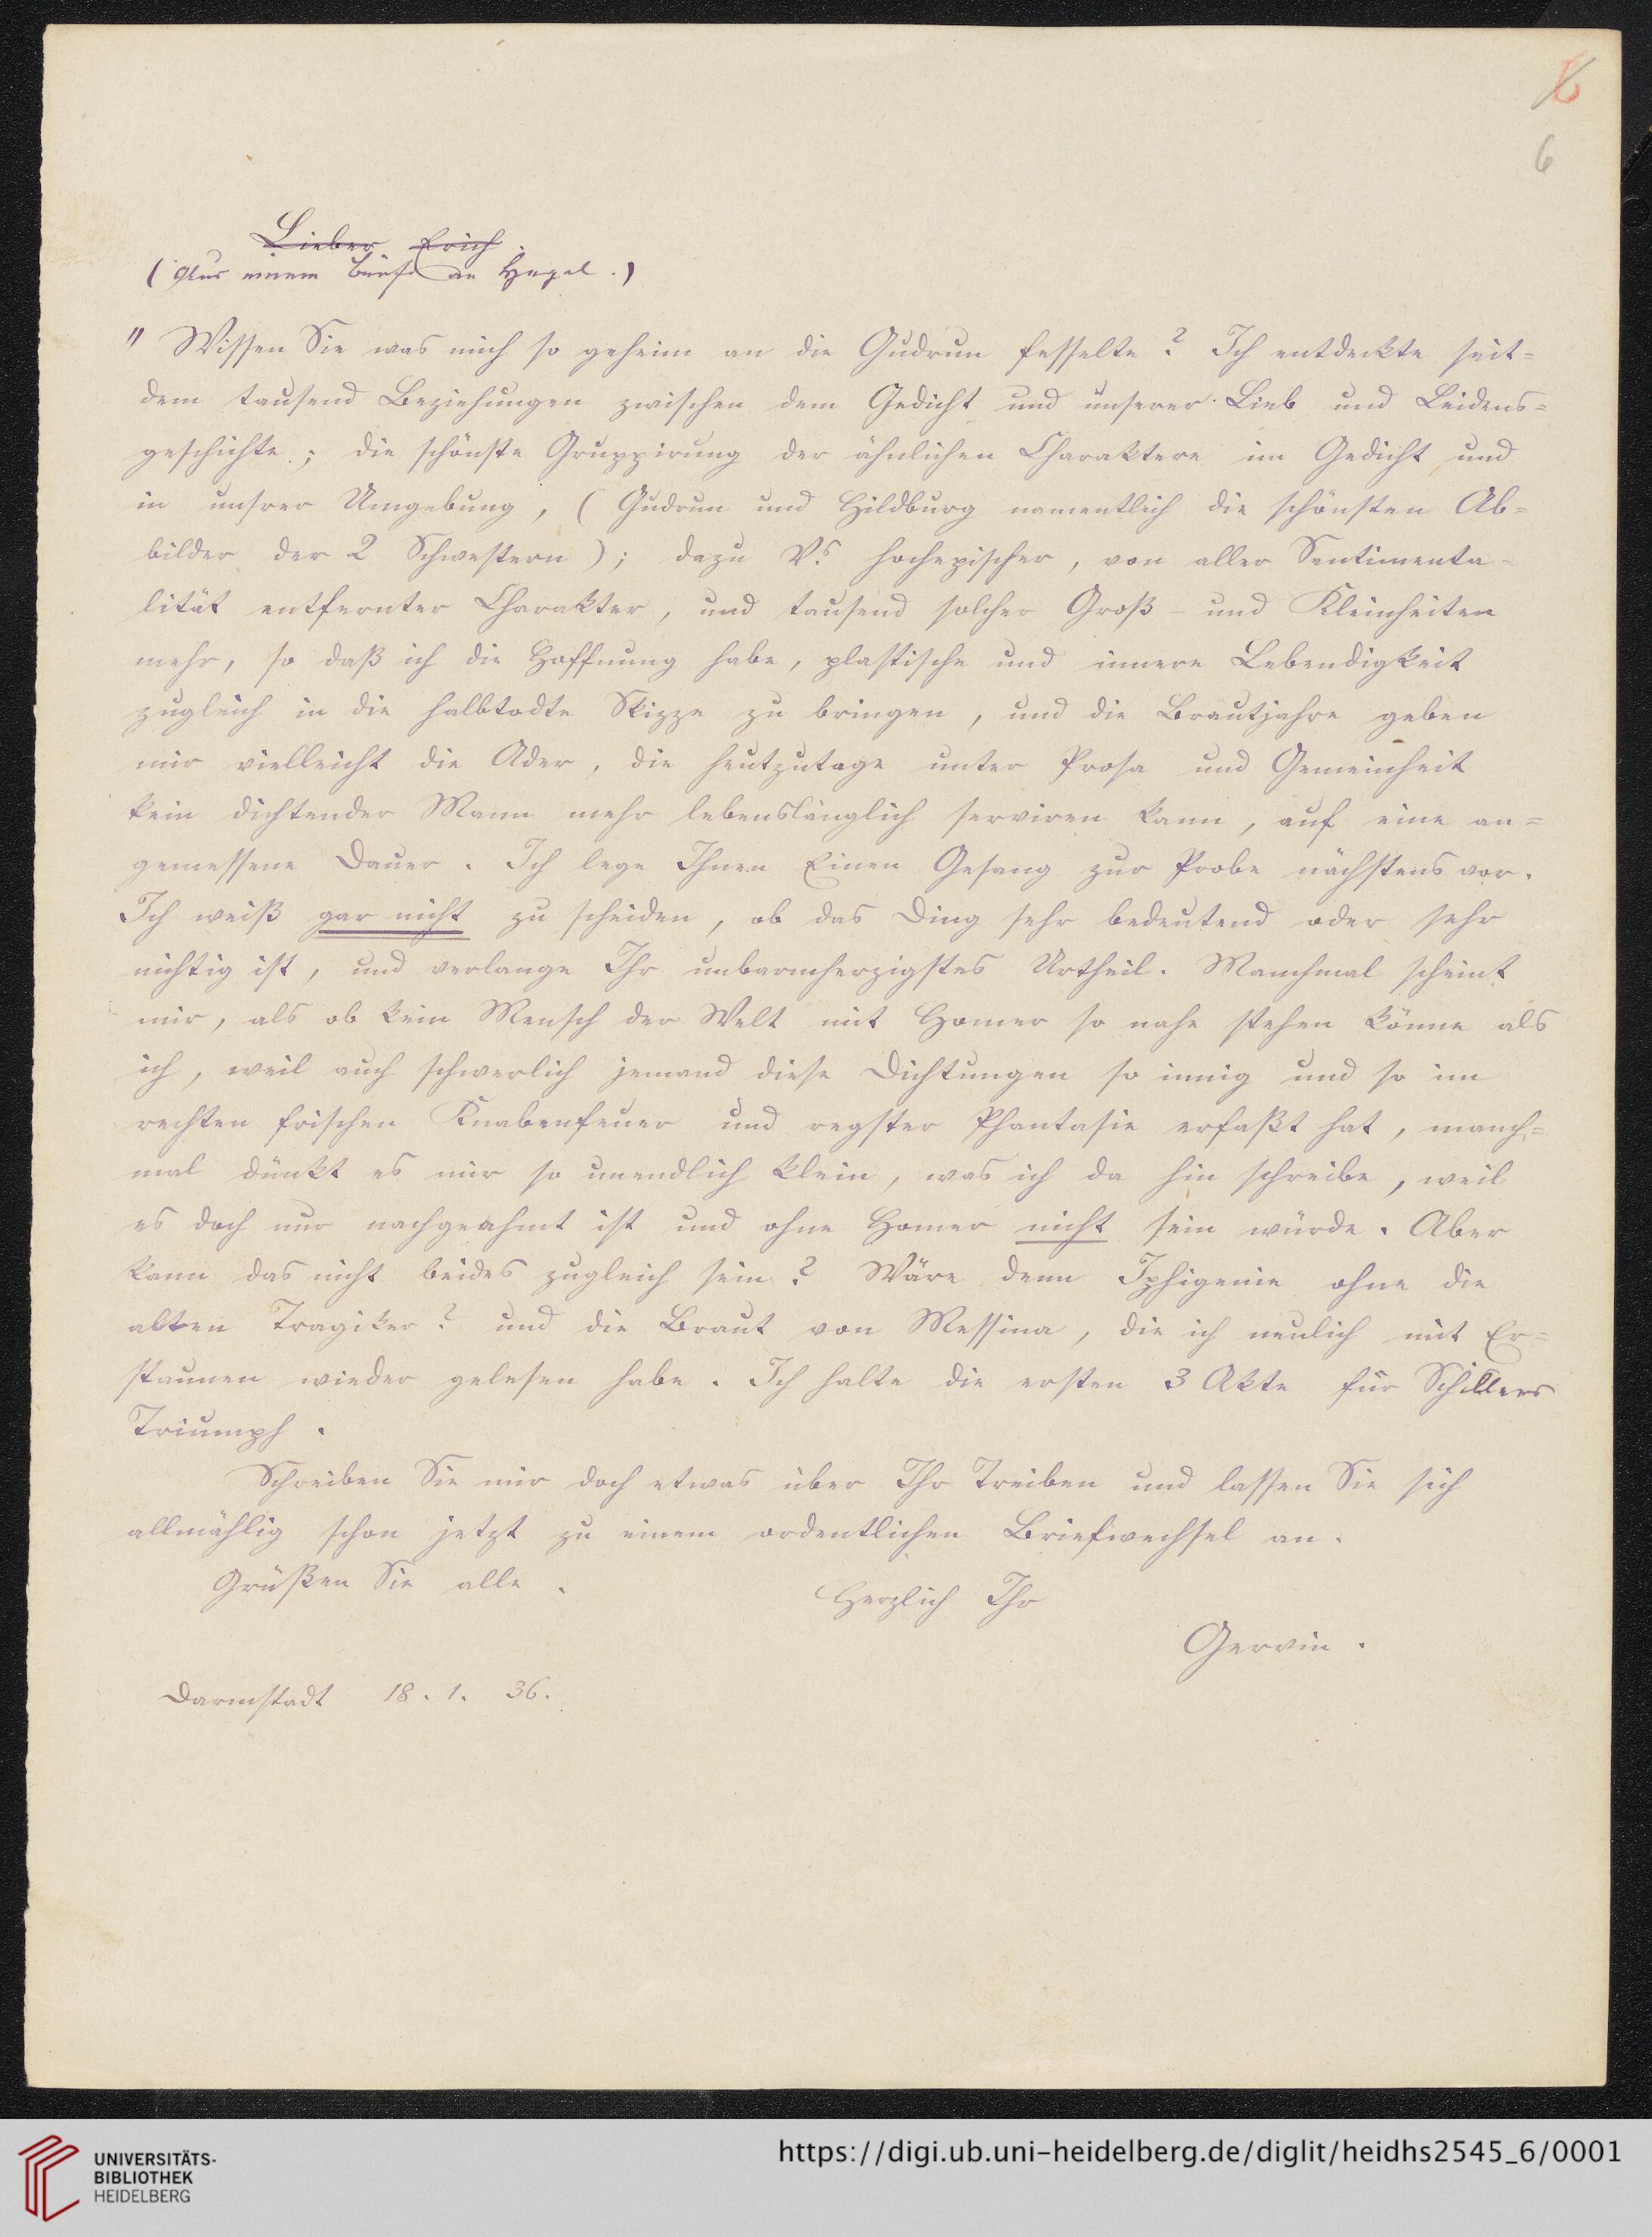 6
6
Lieber Erich
(Aus einem Briefe an Hegel.)
" Wissen Sie was mich so geheim an die Gudrun fesselte? Ich entdeckte seit=
dem tausend Beziehungen zwischen dem Gedicht und unserer Lieb und Leidens=
geschichte; die schönste Gruppirung der ähnlichen Charaktere im Gedicht und
in unsrer Umgebung, (Gudrun und Hildburg namentlich die schönsten Ab=
bilder der 2 Schwestern); dazu V.s hochepischer, von aller Sentimenta=
lität entfernter Charakter, und tausend solcher Groß- und Kleinheiten
mehr, so daß ich die Hoffnung habe, plastische und innere Lebendigkeit
zugleich in die halbtodte Skizze zu bringen, und die Brautjahre geben
mir vielleicht die Ader, die heutzutage unter Prosa und Gemeinheit
kein dichtender Mann mehr lebenslänglich serviren kann, auf eine an=
gemessene Dauer. Ich lege Ihnen Einen Gesang zur Probe nächstens vor.
Ich weiß gar nicht zu scheiden, ob das Ding sehr bedeutend oder sehr
nichtig ist, und verlange Ihr unbarmherzigstes Urtheil. Manchmal scheint
mir, als ob kein Mensch der Welt mit Homer so nahe stehen könne als
ich, weil auch schwerlich jemand diese Dichtungen so innig und so im
rechten frischen Knabenfeuer und regster Phantasie erfaßt hat, manch=
mal dünkt es mir so unendlich klein, was ich da hin schreibe, weil
es doch nur nachgeahmt ist und ohne Homer nicht sein würde. Aber
kann das nicht beides zugleich sein? Wäre denn Iphigenie ohne die
alten Tragiker? und die Braut von Messina, die ich neulich mit Er=
staunen wieder gelesen habe. Ich halte die ersten 3 Akte für Schillers
Triumph.
Schreiben Sie mir doch etwas über Ihr Treiben und lassen Sie sich
allmählig schon jetzt zu einem ordentlichen Briefwechsel an.
Grüßen Sie alle.
Herzlich Ihr
Gervin.
Darmstadt 18. 1. 36.
UNIVERSITÄTS-
BIBLIOTHEK
HEIDELBERG
https://digi.ub.uni-heidelberg.de/diglit/heidhs2545_6/0001